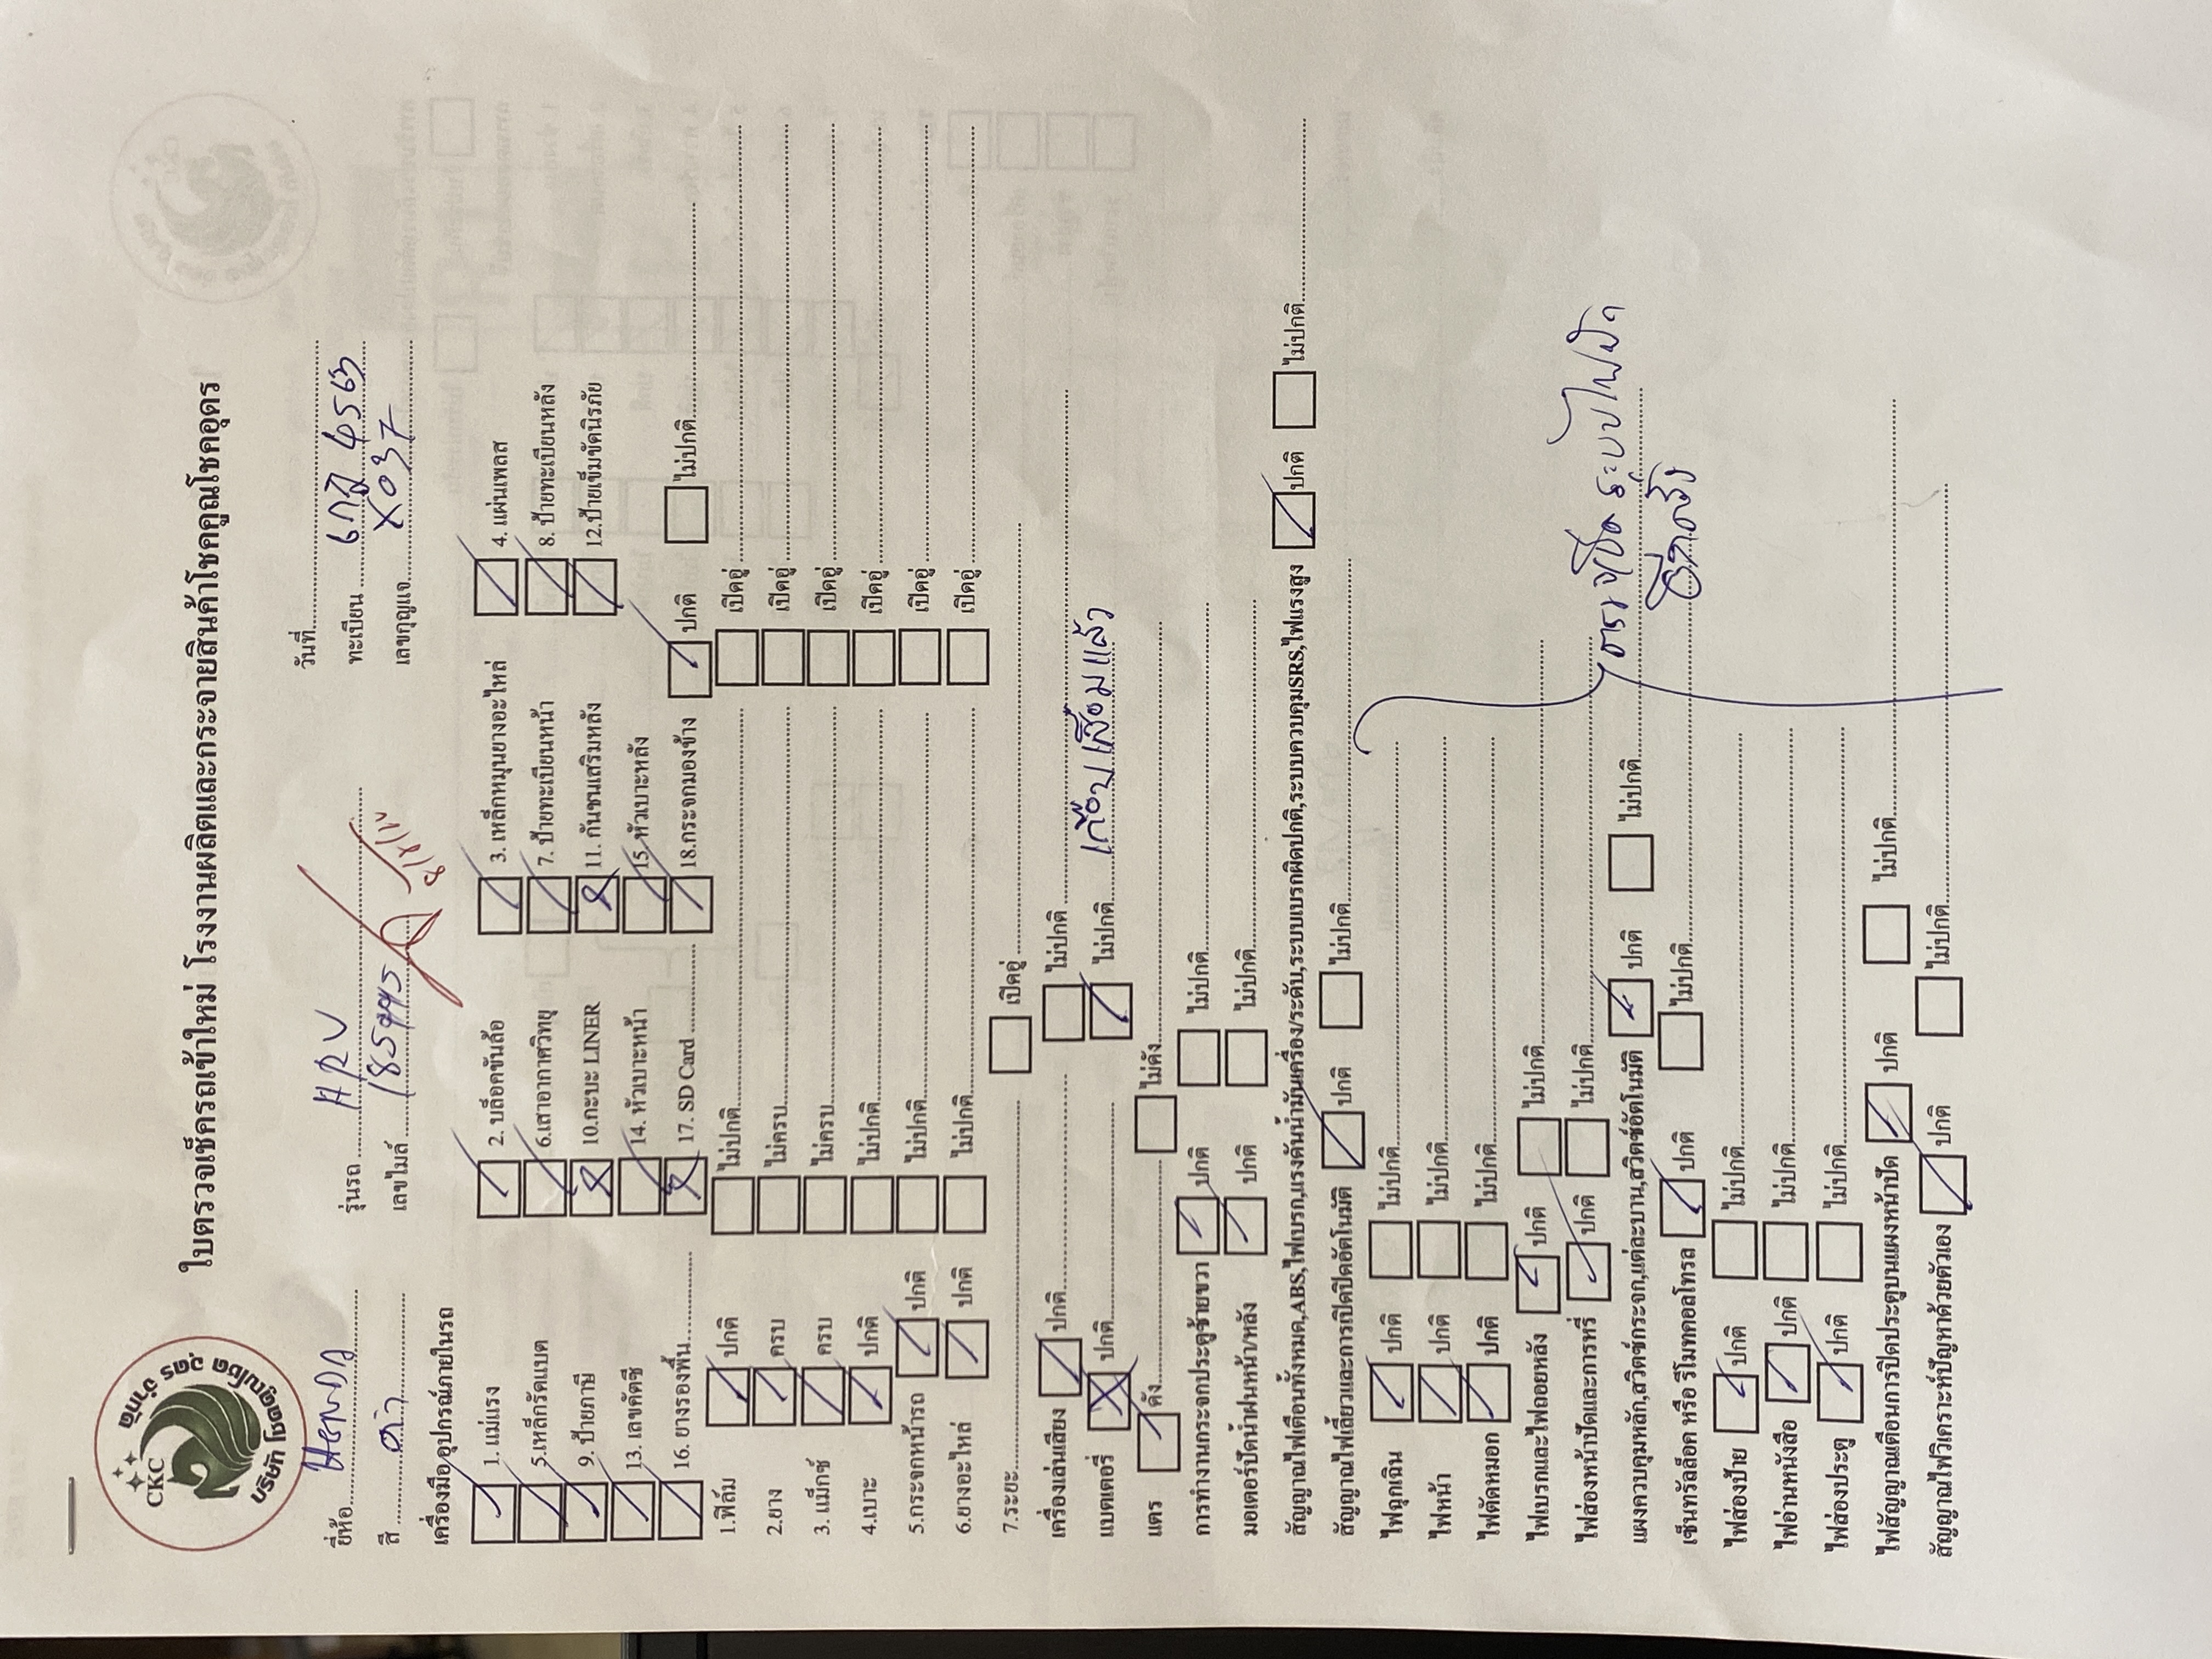 CKC
บริษัท โชคคูณโชค อุดร จำกัด
ใบตรวจเช็ครถเข้าใหม่ โรงงานผลิตและกระจายสินค้าโชคคูณโชคอุดร
วันที่
ยี่ห้อ Honda รุ่นรถ HRV ทะเบียน 6กฎ 4563
สี ดำ เลขไมล์ เลขกุญแจ X037
เครื่องมือ,อุปกรณ์ภายในรถ
1. แม่แรง 2. บล็อคขันล้อ 3. เหล็กหมุนยางอะไหล่ 4. แผ่นเพลส
5.เหล็กรัดแบต 6.เสาอากาศวิทยุ 7. ป้ายทะเบียนหน้า 8. ป้ายทะเบียนหลัง
9. ป้ายภาษี 10.กะบะ LINER 11. กันชนเสริมหลัง 12.ป้ายเข็มขัดนิรภัย
13. เลขคัตซี 14. หัวเบาะหน้า 15.หัวเบาะหลัง
16. ยางรองพื้น 17. SD Card 18.กระจกมองข้าง ปกติ ไม่ปกติ
1.ฟิล์ม ปกติ ไม่ปกติ เปิดอู่
2.ยาง ครบ ไม่ครบ เปิดอู่
3. แม็กซ์ ครบ ไม่ครบ เปิดอู่
4.เบาะ ปกติ ไม่ปกติ เปิดอู่
5.กระจกหน้ารถ ปกติ ไม่ปกติ เปิดอู่
6.ยางอะไหล่ ปกติ ไม่ปกติ เปิดอู่
7.ระยะ เปิดอู่
เครื่องเล่นเสียง ปกติ ไม่ปกติ
แบตเตอรี่ ปกติ ไม่ปกติ เกือบเสื่อมแล้ว
แตร ดัง ไม่ดัง
การทำงานกระจกประตูซ้ายขวา ปกติ ไม่ปกติ
มอเตอร์ปัดน้ำฝนหน้า/หลัง ปกติ ไม่ปกติ
สัญญาณไฟเตือนทั้งหมด,ABS,ไฟเบรก,แรงดันน้ำมันเครื่อง/ระดับ,ระบบเบรกผิดปกติ,ระบบควบคุมSRS,ไฟแรงสูง ปกติ ไม่ปกติ
สัญญาณไฟเลี้ยวและการเปิดปิดอัตโนมัติ ปกติ ไม่ปกติ
ไฟฉุกเฉิน ปกติ ไม่ปกติ
ไฟหน้า ปกติ ไม่ปกติ
ไฟตัดหมอก ปกติ ไม่ปกติ
ไฟเบรกและไฟถอยหลัง ปกติ ไม่ปกติ
ไฟส่องหน้าปัดและการหรี่ ปกติ ไม่ปกติ
ระบบไฟ
แผงควบคุมหลัก,สวิตซ์กระจก,แต่ละบาน,สวิตซ์อัตโนมัติ ปกติ ไม่ปกติ
อีกครั้ง
เซ็นทรัลล็อค หรือ รีโมทคอลโทรล ปกติ ไม่ปกติ
ไฟส่องป้าย ปกติ ไม่ปกติ
ไฟอ่านหนังสือ ปกติ ไม่ปกติ
ไฟส่องประตู ปกติ ไม่ปกติ
ไฟสัญญาณเตือนการปิดประตูบนแผงหน้าปัด ปกติ ไม่ปกติ
สัญญาณไฟวิเคราะห์ปัญหาด้วยตัวเอง ปกติ ไม่ปกติ